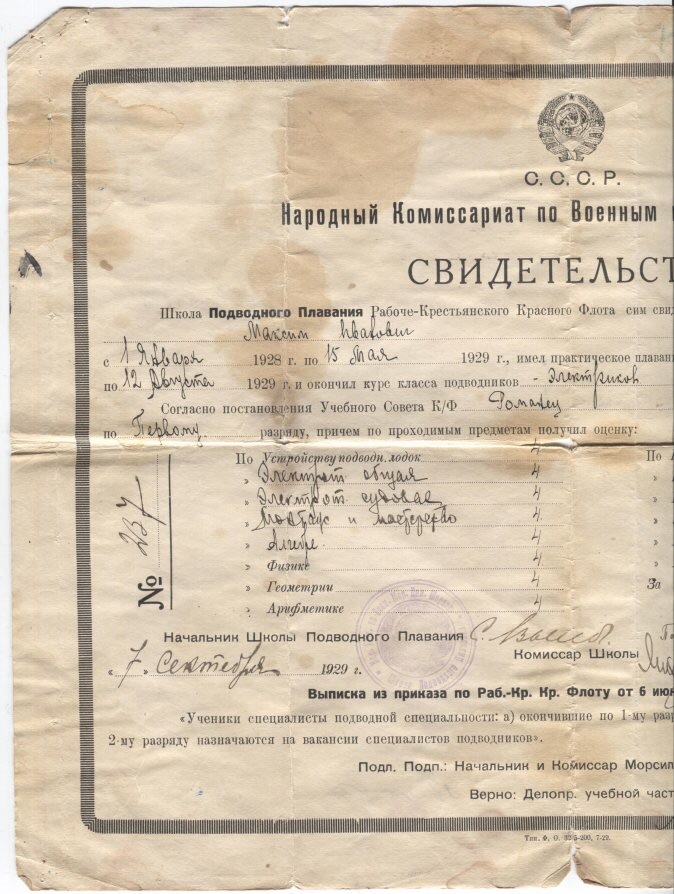 С. С. С. Р.
Народный Комиссариат по Военным
СВИДЕТЕЛЬСТ
Школа Подводного Плавания Рабоче-Крестьянского Красного Флота сим сви
Максим Иванович
с 1 Января 1928 г. по 15 Мая 1929 г., имел практическое плаван
по 12 Августа 1929 г. и окончил курс класса подводников - Электриков
Согласно постановления Учебного Совета К/Ф Романец
по Первому разряду, причем по проходимым предметам получил оценку:
По Устройству подводн. лодок 4 По
» Электрот общая 4 »
» Электрот судовая 4 »
» Монтаж и мастерство 4 »
» Алгебре 4 »
» Физике 4
» Геометрии 4 За
» Арифметике 4 »
№ 237
Начальник Школы Подводного Плавания
Комиссар Школы
«7» Сентября 1929 г.
Выписка из приказа по Раб.-Кр. Кр. Флоту от 6 июн
«Ученики специалисты подводной специальности: а) окончившие по 1-му разр
2-му разряду назначаются на вакансии специалистов подводников».
Подл. Подп.: Начальник и Комиссар Морсил
Верно: Делопр. учебной част
Тип. Ф. О. 32 5-200, 7-29.